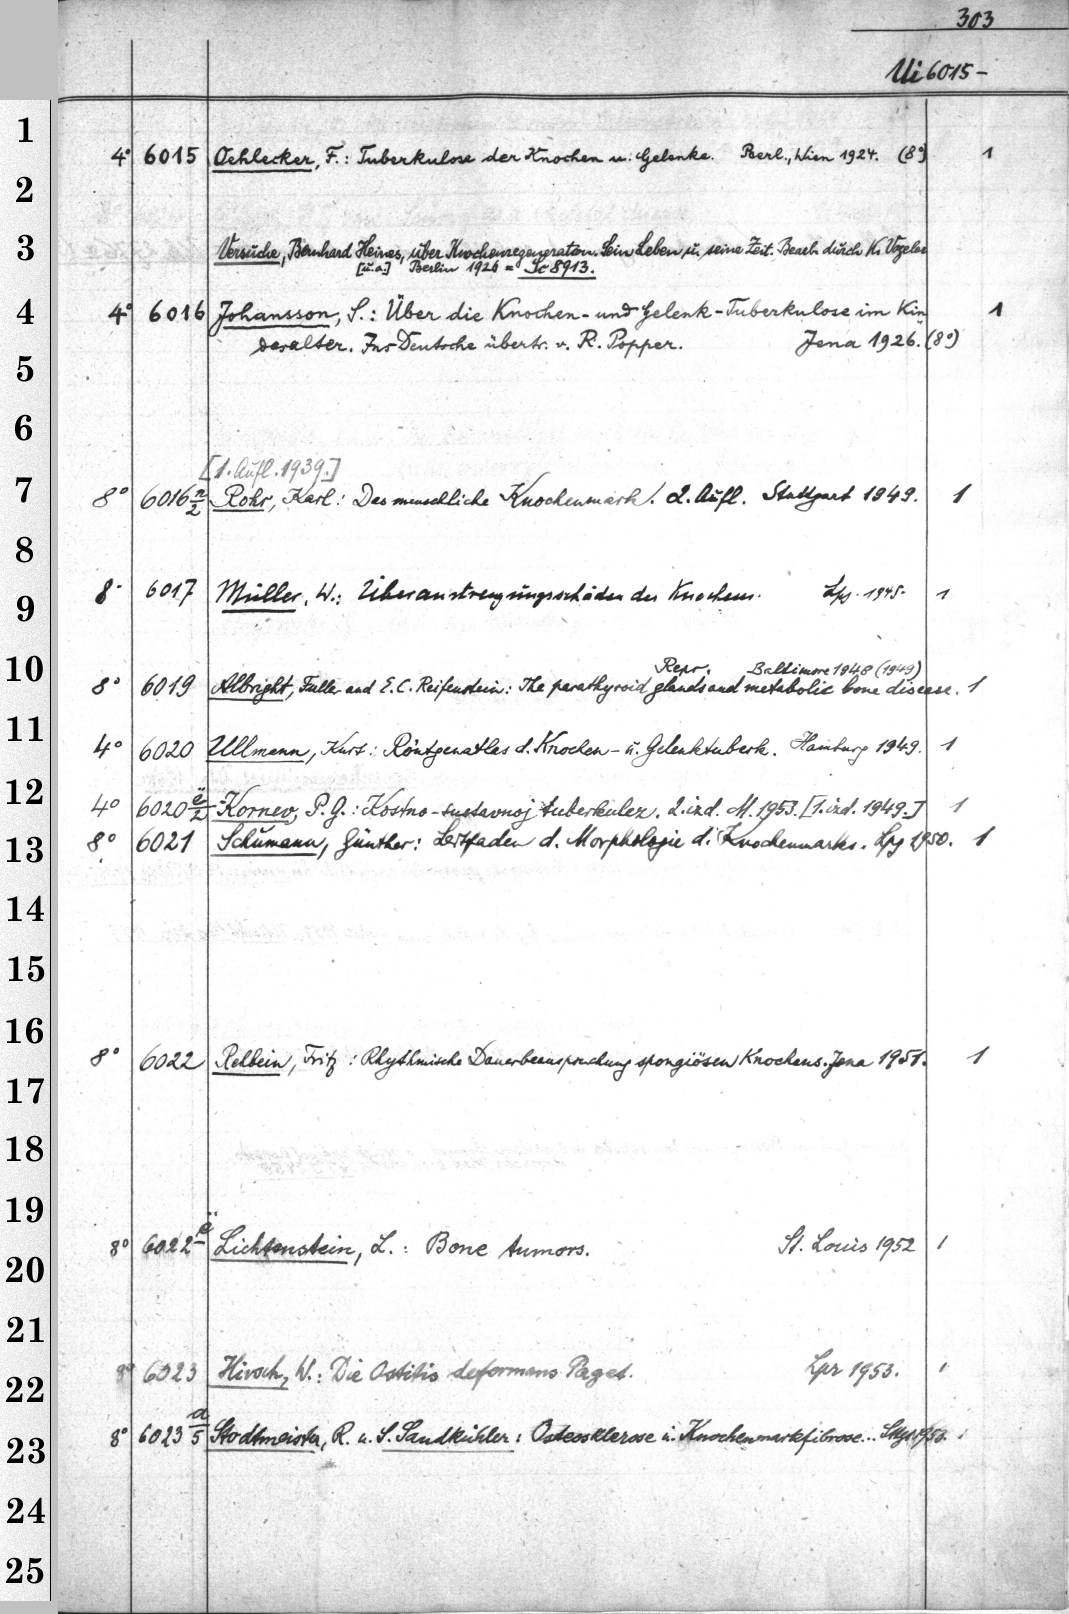 303
Ui 6015-
1
4° 6015 Oehlecker, F.: Tuberkulose der Knochen u. Gelenke. Berl., Wien 1924. (8°) 1
2
3 Versuche, Bernhard Heines, über Knochenregeneration. Sein Leben u. seine Zeit. Bearb. durch K. Vogeler
[u.a.] Berlin 1926 = Ic 8913.
4 4° 6016 Johansson, S.: Über die Knochen- und Gelenk-Tuberkulose im Kin 1
desalter. Ins Deutsche übertr. v. R. Popper. Jena 1926. (8°)
5
6
[1. Aufl. 1939.]
7 8° 6016 n/2 Rohr, Karl: Das menschliche Knochenmark. 2. Aufl. Stuttgart 1949. 1
8
9 8° 6017 Müller, W.: Überanstrengungsschäden des Knochens. Lpz. 1945. 1
Repr. Baltimore 1948 (1949)
10 8° 6019 Albright, Fuller and E.C. Reifenstein: The parathyroid glands and metabolic bone disease. 1
11 4° 6020 Ullmann, Kurt: Röntgenatlas d. Knochen- u. Gelenktuberk. Hamburg 1949. 1
12 4° 6020 ë/2 Kornev, P.G.: Kostno-sustavnoj tuberkulez. 2. izd. M. 1953. [1. izd. 1949.] 1
13 8° 6021 Schumann, Günther: Leitfaden d. Morphologie d. Knochenmarks. Lpg 1950. 1
14
15
16
8° 6022 Rehbein, Fritz: Rhythmische Dauerbeanspruchung spongiösen Knochens. Jena 1951. 1
17
18
19
8° 6022 ë Lichtenstein, L.: Bone tumors. St. Louis 1952 1
20
21
8° 6023 Hirsch, W.: Die Ostitis deformans Paget. Lpz 1953. 1
22
23 8° 6023 a/5 Stodtmeister, R. u. S. Sandkühler: Osteosklerose u. Knochenmarkfibrose. Stg. 1953. 1
24
25